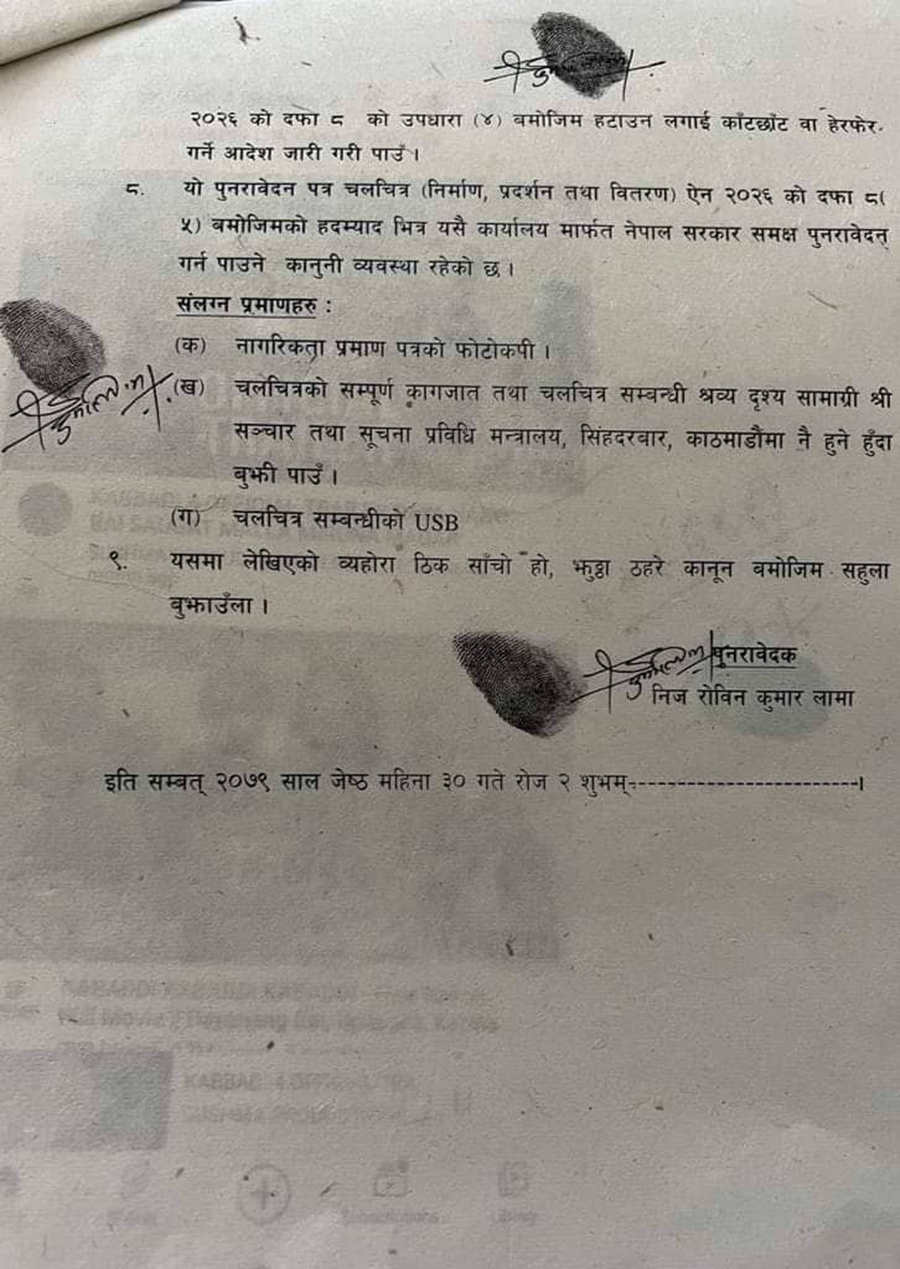 २०२६ को दफा ८ को उपधारा (४) बमोजिम हटाउन लगाई काँटछाँट वा हेरफेर
गर्ने आदेश जारी गरी पाउँ ।
८. यो पुनरावेदन पत्र चलचित्र (निर्माण, प्रदर्शन तथा वितरण) ऐन २०२६ को दफा ८(
५) बमोजिमको हदम्याद भित्र यसै कार्यालय मार्फत नेपाल सरकार समक्ष पुनरावेदन्
गर्न पाउने कानुनी व्यवस्था रहेको छ ।
संलग्न प्रमाणहरु :
(क) नागरिकता प्रमाण पत्रको फोटोकपी ।
(ख) चलचित्रको सम्पूर्ण कागजात तथा चलचित्र सम्बन्धी श्रव्य दृश्य सामाग्री श्री
सञ्चार तथा सूचना प्रविधि मन्त्रालय, सिंहदरबार, काठमाडौंमा नै हुने हुँदा
बुझी पाउँ ।
(ग) चलचित्र सम्बन्धीको USB
९. यसमा लेखिएको व्यहोरा ठिक साँचो हो, झुठ्ठा ठहरे कानून बमोजिम सहुला
बुझाउँला ।
पुनरावेदक
निज रोविन कुमार लामा
इति सम्बत् २०७९ साल जेष्ठ महिना ३० गते रोज २ शुभम्-----------------------।
KABADDI KABADDI KABADDI
KABADDI 4 OFFICIAL